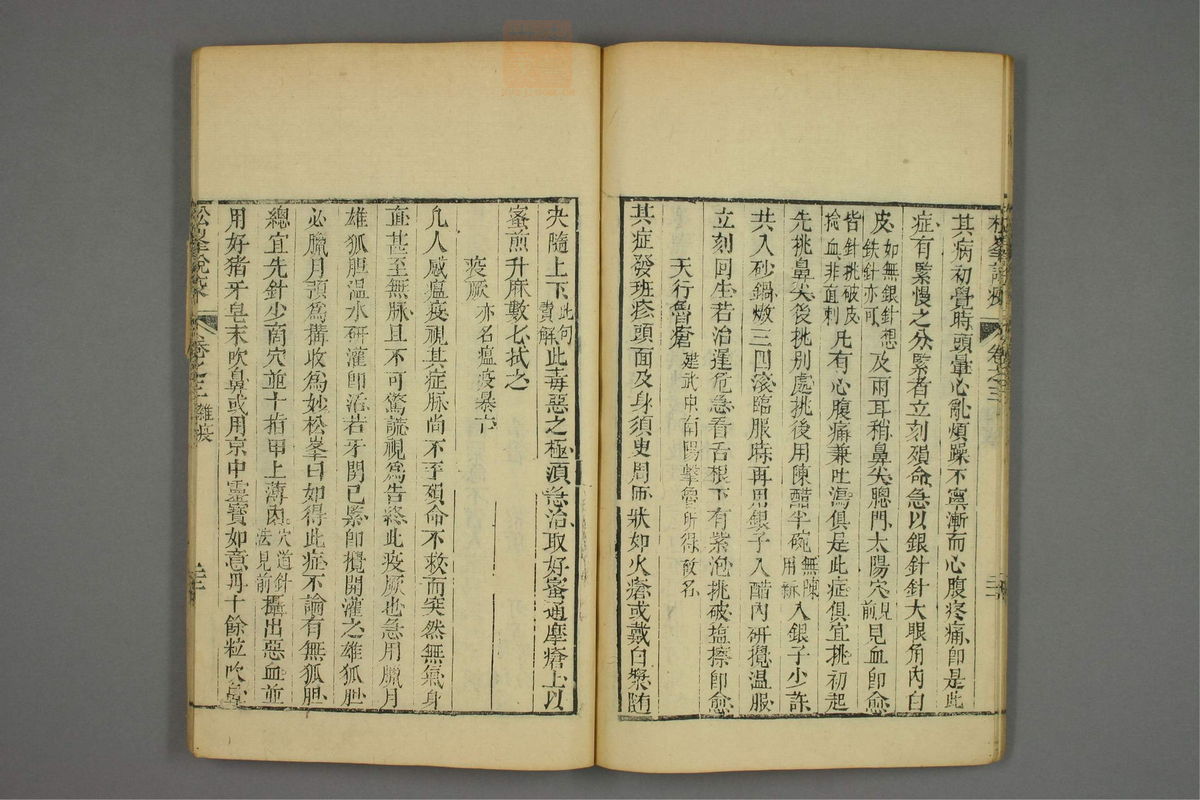 松峯說疫 卷之三
其病初覺時頭暈心亂煩躁不寧漸而心腹疼痛即是此
症有緊慢之分緊者立刻殞命急以銀針針大眼角內白
皮如無銀針想鉄針亦可及兩耳稍鼻尖聰門太陽穴見前見血即愈
皆針挑破皮捻血非直刺凡有心腹痛兼吐瀉俱是此症俱宜挑初起
先挑鼻尖後挑別處挑後用陳醋半碗無陳用新入銀子少許
共入砂鍋燉三四滾臨服時再用銀子入醋內研攪温服
立刻回生若治遲危急看舌根下有紫泡挑破塩搽即愈
天行魯瘡建武中南陽擊魯所得故名
其症發班疹頭面及身須臾周匝狀如火瘡或戴白漿随
夬隨上下此句費解此毒惡之極湏急治取好蜜通摩瘡上以
蜜煎升麻數匕拭之
疫厥亦名瘟疫暴亡
凡人感瘟疫視其症脈尚不至殞命不救而突然無氣身
直甚至無脈且不可驚謊視為告終此疫厥也急用臘月
雄狐胆温水研灌即活若牙関已緊即攪開灌之雄狐胆
必臘月預為搆收為妙松峯曰如得此症不論有無狐胆
總宜先針少商穴並十指甲上薄肉穴道針法見前攝出惡血並
用好猪牙皂末吹鼻或用京中靈寶如意丹十餘粒吹鼻
松峯說疫 卷之三 雜疫